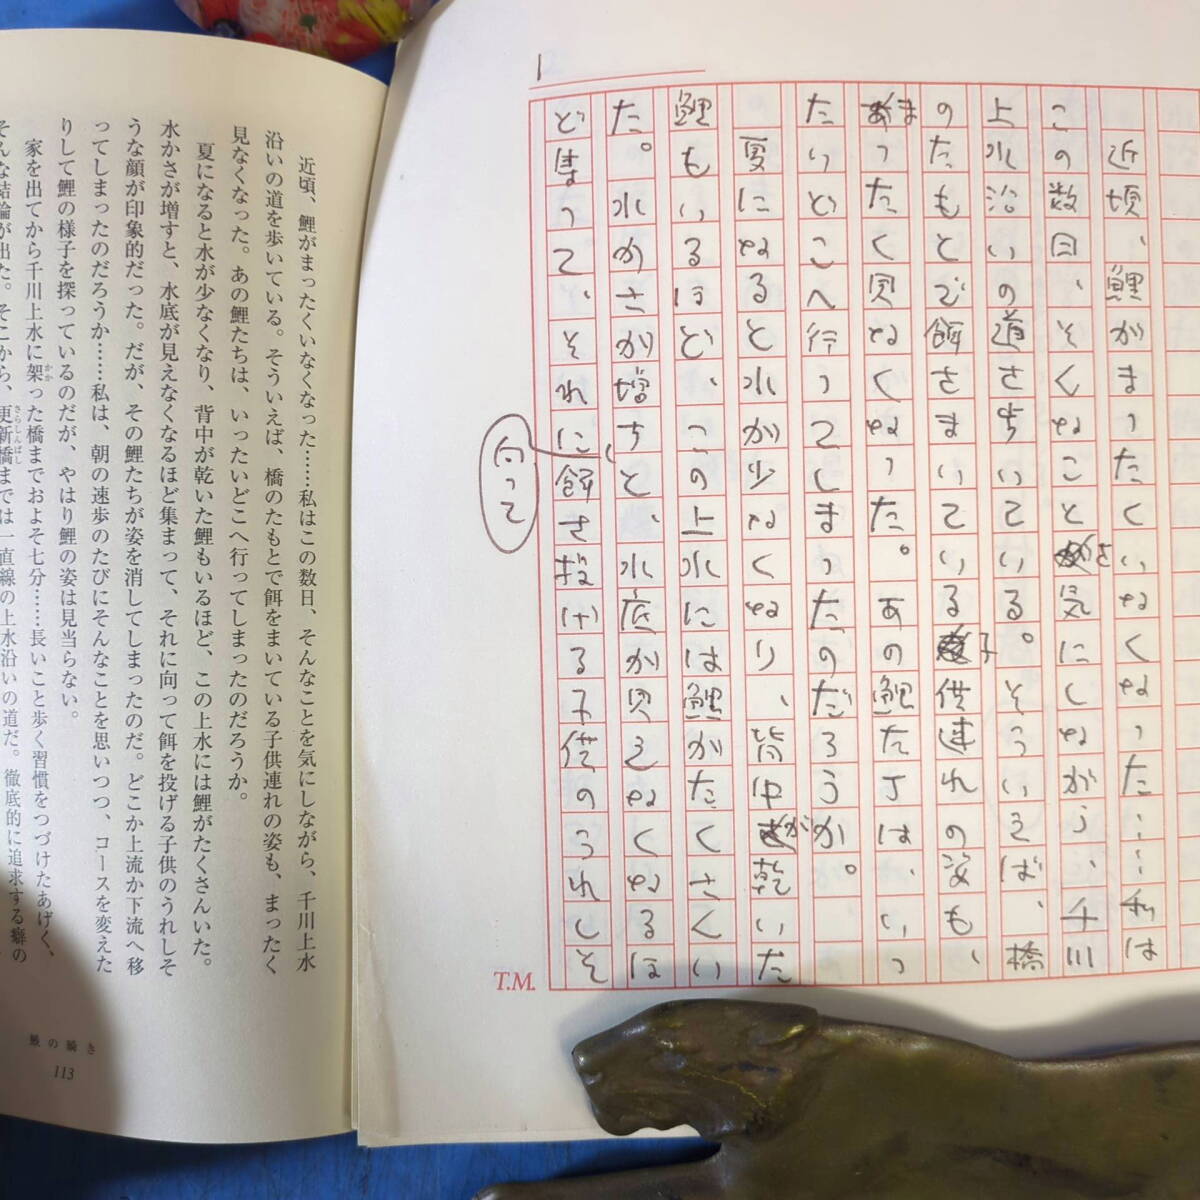 1
近頃、鯉がまったくいなくなった……私は
この数日、そんなことを気にしながら、千川
上水沿いの道を歩いている。そういえば、橋
のたもとで餌をまいている子供連れの姿も、
まったく見なくなった。あの鯉たちは、いっ
たいどこへ行ってしまったのだろうか。
夏になると水が少なくなり、背中が乾いた
鯉もいるほど、この上水には鯉がたくさんい
た。水かさが増すと、水底が見えなくなるほ
ど集まって、それに向って餌を投げる子供のうれしそ
T.M.
近頃、鯉がまったくいなくなった……私はこの数日、そんなことを気にしながら、千川上水
沿いの道を歩いている。そういえば、橋のたもとで餌をまいている子供連れの姿も、まったく
見なくなった。あの鯉たちは、いったいどこへ行ってしまったのだろうか。
夏になると水が少なくなり、背中が乾いた鯉もいるほど、この上水には鯉がたくさんいた。
水かさが増すと、水底が見えなくなるほど集まって、それに向って餌を投げる子供のうれしそ
うな顔が印象的だった。だが、その鯉たちが姿を消してしまったのだ。どこか上流か下流へ移
ってしまったのだろうか……私は、朝の速歩のたびにそんなことを思いつつ、コースを変えた
りして鯉の様子を探っているのだが、やはり鯉の姿は見当らない。
家を出てから千川上水に架かかった橋までおよそ七分……長いこと歩く習慣をつづけたあげく、
そんな結論が出た。そこから、更新橋さらしんばしまでは一直線の上水沿いの道だ。徹底的に追求する癖の
鰍の瞬き
113